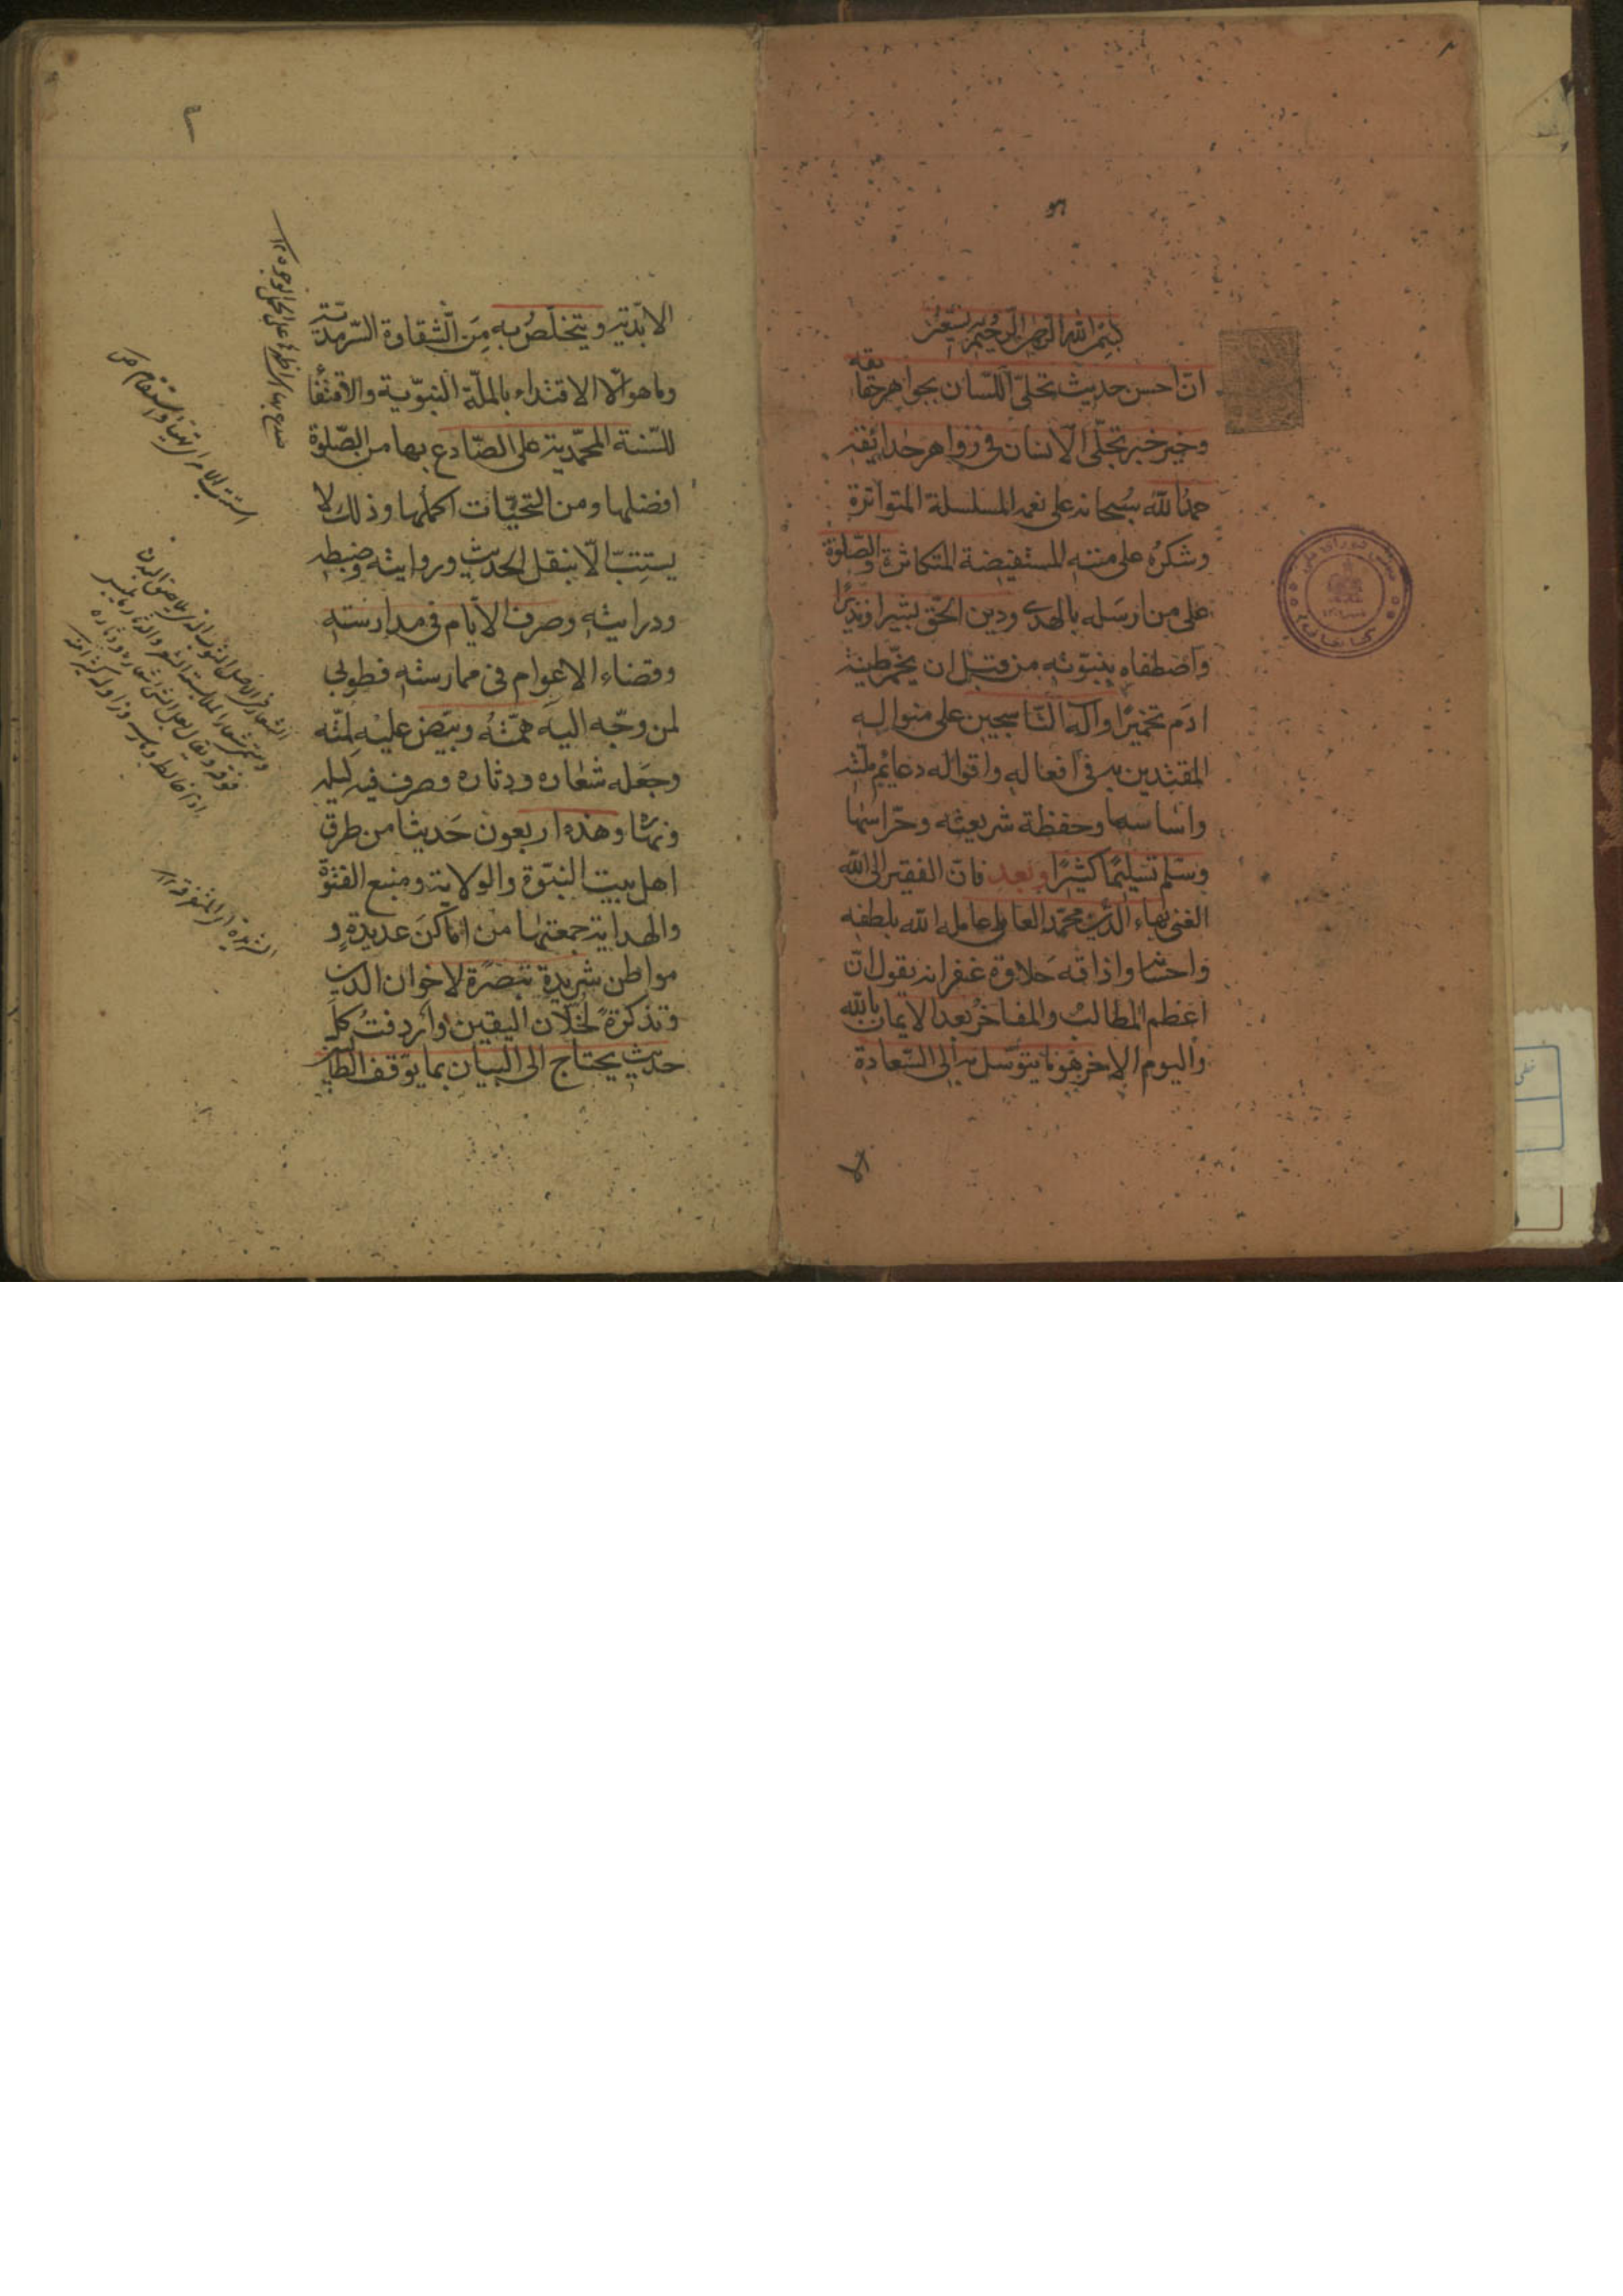 بسم الله الرحمن الرحيم وبه نستعين
انّ احسن حديث تحلّى اللّسان بجواهر حقايقه
وخير خبر تجلّى الانسان فى زواهر حدائقه
حمدُ الله سبحانه على نعمه المسلسلة المتواترة
وشكرُه على مننه المستفيضة المتكاثرة والصّلوة
على من ارسله بالهدى ودين الحق بشيرا ونذيرًا
واصطفاه بنبوّته من قبل ان يخمّر طينة
ادم تخميرًا وآله النّاسجين على منواله
المقتدين به فى افعاله واقواله دعائم ملّته
واساسها وحفظة شريعته وحرّاسها
وسلّم تسليمًا كثيرًا وبعد فانّ الفقير الى الله
الغنى بهاء الدّين محمّد العاملى عامله الله بلطفه
واحسانه واذاقه حلاوة غفرانه يقول انّ
اعظم المطالب والمفاخر بعد الايمان بالله
واليوم الاخر هو ما يتوسّل به الى السّعادة
الا
الابديّة ويتخلّص به من الشّقاوة السّرمديّة
وما هو الّا الاقتداء بالملّة النبوّية والاقتفاء
للسّنة المحمّدية على الصّادع بها من الصّلوة
افضلها ومن التحيّات اكملها وذلك لا
يستتبّ الّا بنقل الحديث وروايته وضبطه
ودرايته وصرف الايّام فى مدارسته
وقضاء الاعوام فى ممارسته فطوبى
لمن وجّه اليه همّته وبيّض عليه لمّته
وجعله شعاره ودثاره وصرف فيه ليله
ونهاره وهذه اربعون حديثا من طرق
اهل بيت النبّوة والولاية ومنبع الفتوّة
والهداية جمعتها من اماكن عديدة و
مواطن شريدة تبصرة لاخوان الدين
وتذكرة لخلّان اليقين واردفت كل
حديث يحتاج الى البيان بما يتوقف الطالب
استتب الامر اى تهيأ واستقام ص